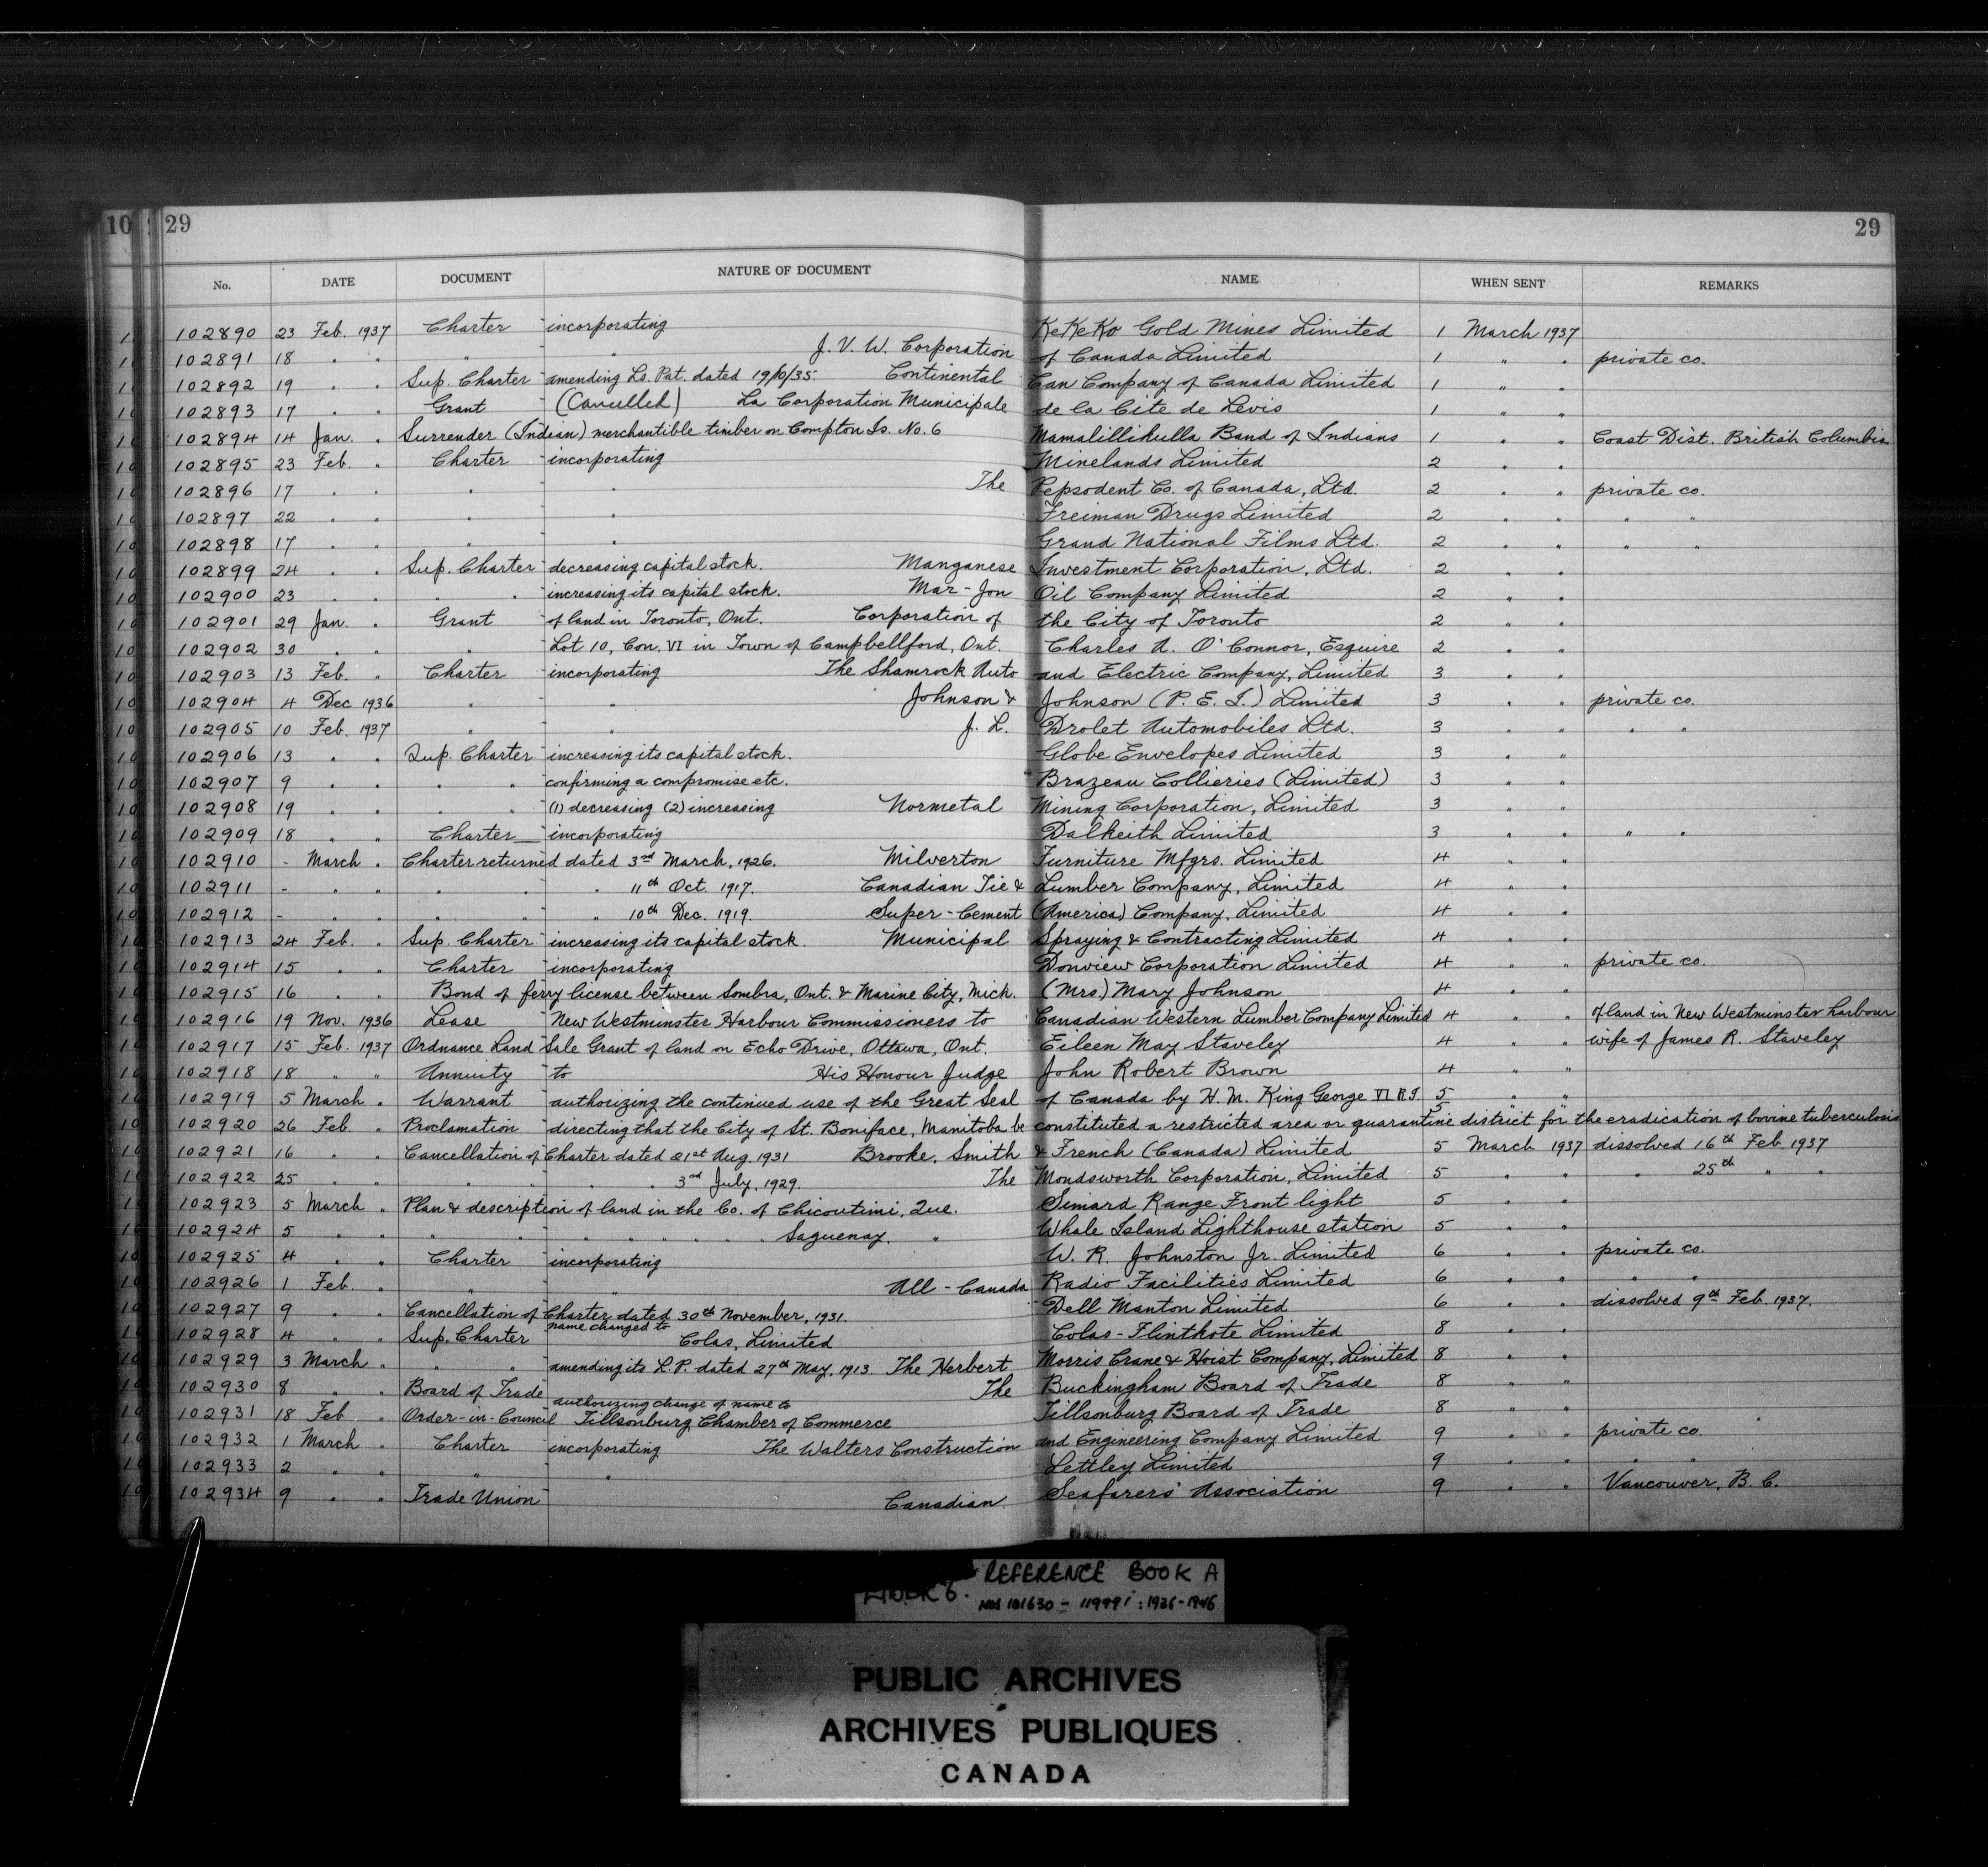 10 29 29
No. DATE DOCUMENT NATURE OF DOCUMENT NAME WHEN SENT REMARKS
102890 23 Feb. 1937 Charter incorporating KeKeKo Gold Mines Limited 1 March 1937
102891 18 " " " " J. V. W. Corporation of Canada Limited 1 " " private co.
102892 19 " " Sup. Charter amending Ls. Pat. dated 19/10/35. Continental Can Company of Canada Limited 1 " "
102893 17 " " Grant (Cancelled) La Corporation Municipale de la Cite de Levis 1 " "
102894 14 Jan. " Surrender (Indian) merchantible timber on Compton Is. No. 6 Mamalillikulla Band of Indians 1 " " Coast Dist. British Columbia
102895 23 Feb. " Charter incorporating Minelands Limited 2 " "
102896 17 " " " " The Pepsodent Co. of Canada, Ltd. 2 " " private co.
102897 22 " " " " Freiman Drugs Limited 2 " " " "
102898 17 " " " " Grand National Films Ltd. 2 " " " "
102899 24 " " Sup. Charter decreasing capital stock. Manganese Investment Corporation, Ltd. 2 " "
102900 23 " " " " increasing its capital stock. Mar-Jon Oil Company Limited 2 " "
102901 29 Jan. " Grant of land in Toronto, Ont. Corporation of the City of Toronto 2 " "
102902 30 " " " Lot 10, Con. VI in Town of Campbellford, Ont. Charles A. O'Connor, Esquire 2 " "
102903 13 Feb. " Charter incorporating The Shamrock Auto and Electric Company, Limited 3 " "
102904 4 Dec 1936 " " Johnson & Johnson (P. E. I.) Limited 3 " " private co.
102905 10 Feb. 1937 " " J. L. Drolet Automobiles Ltd. 3 " " " "
102906 13 " " Sup. Charter increasing its capital stock. Globe Envelopes Limited 3 " "
102907 9 " " " " confirming a compromise etc. Brazeau Collieries (Limited) 3 " "
102908 19 " " " " (1) decreasing (2) increasing Normetal Mining Corporation, Limited 3 " "
102909 18 " " Charter incorporating Dalkeith Limited 3 " " " "
102910 - March " Charter returned dated 3rd March, 1926. Milverton Furniture Mfgrs. Limited 4 " "
102911 - " " " " " 11th Oct. 1917. Canadian Tie & Lumber Company, Limited 4 " "
102912 - " " " " " 10th Dec. 1919. Super-Cement (America) Company, Limited 4 " "
102913 24 Feb. " Sup. Charter increasing its capital stock. Municipal Spraying & Contracting Limited 4 " "
102914 15 " " Charter incorporating Donview Corporation Limited 4 " " private co.
102915 16 " " Bond of ferry license between Sombra, Ont. & Marine City, Mich. (Mrs.) Mary Johnson 4 " "
102916 19 Nov. 1936 Lease New Westminster Harbour Commissioners to Canadian Western Lumber Company Limited 4 " " of land in New Westminster harbour
102917 15 Feb. 1937 Ordnance Land Sale Grant of land on Echo Drive, Ottawa, Ont. Eileen May Staveley 4 " " wife of James R. Staveley
102918 18 " " Annuity to His Honour Judge John Robert Brown 4 " "
102919 5 March " Warrant authorizing the continued use of the Great Seal of Canada by H. M. King George VI R.I. 5 " "
102920 26 Feb. " Proclamation directing that the City of St. Boniface, Manitoba be constituted a restricted area or quarantine district for the eradication of bovine tuberculosis 5
102921 16 " " Cancellation of Charter dated 21st Aug. 1931 Brooke, Smith & French (Canada) Limited 5 March 1937 dissolved 16th Feb. 1937
102922 25 " " " " " 3rd July, 1929. The Mondsworth Corporation, Limited 5 " " " 25th " "
102923 5 March " Plan & description of land in the Co. of Chicoutimi, Que. Simard Range Front light 5 " "
102924 5 " " " " " " " " " " Saguenay. " Whale Island Lighthouse station 5 " "
102925 4 " " Charter incorporating W. R. Johnston Jr. Limited 6 " " private co.
102926 1 Feb. " " " All-Canada Radio Facilities Limited 6 " " " "
102927 9 " " Cancellation of Charter dated 30th November, 1931. Dell Manton Limited 6 " " dissolved 9th Feb. 1937.
102928 4 " " Sup. Charter name changed to Colas, Limited Colas-Flintkote Limited 8 " "
102929 3 March " " " amending its L.P. dated 27th May, 1913. The Herbert Morris Crane & Hoist Company, Limited 8 " "
102930 8 " " Board of Trade The Buckingham Board of Trade 8 " "
102931 18 Feb " Order-in-Council authorizing change of name to Tillsonburg Chamber of Commerce Tillsonburg Board of Trade 8 " "
102932 1 March " Charter incorporating The Walters Construction and Engineering Company Limited 9 " " private co.
102933 2 " " " " Lettley Limited 9 " " " "
102934 9 " " Trade Union Canadian Seafarers' Association 9 " " Vancouver, B. C.
REFERENCE BOOK A
Nos 101630 - 119991 : 1936-1946
PUBLIC ARCHIVES
ARCHIVES PUBLIQUES
CANADA